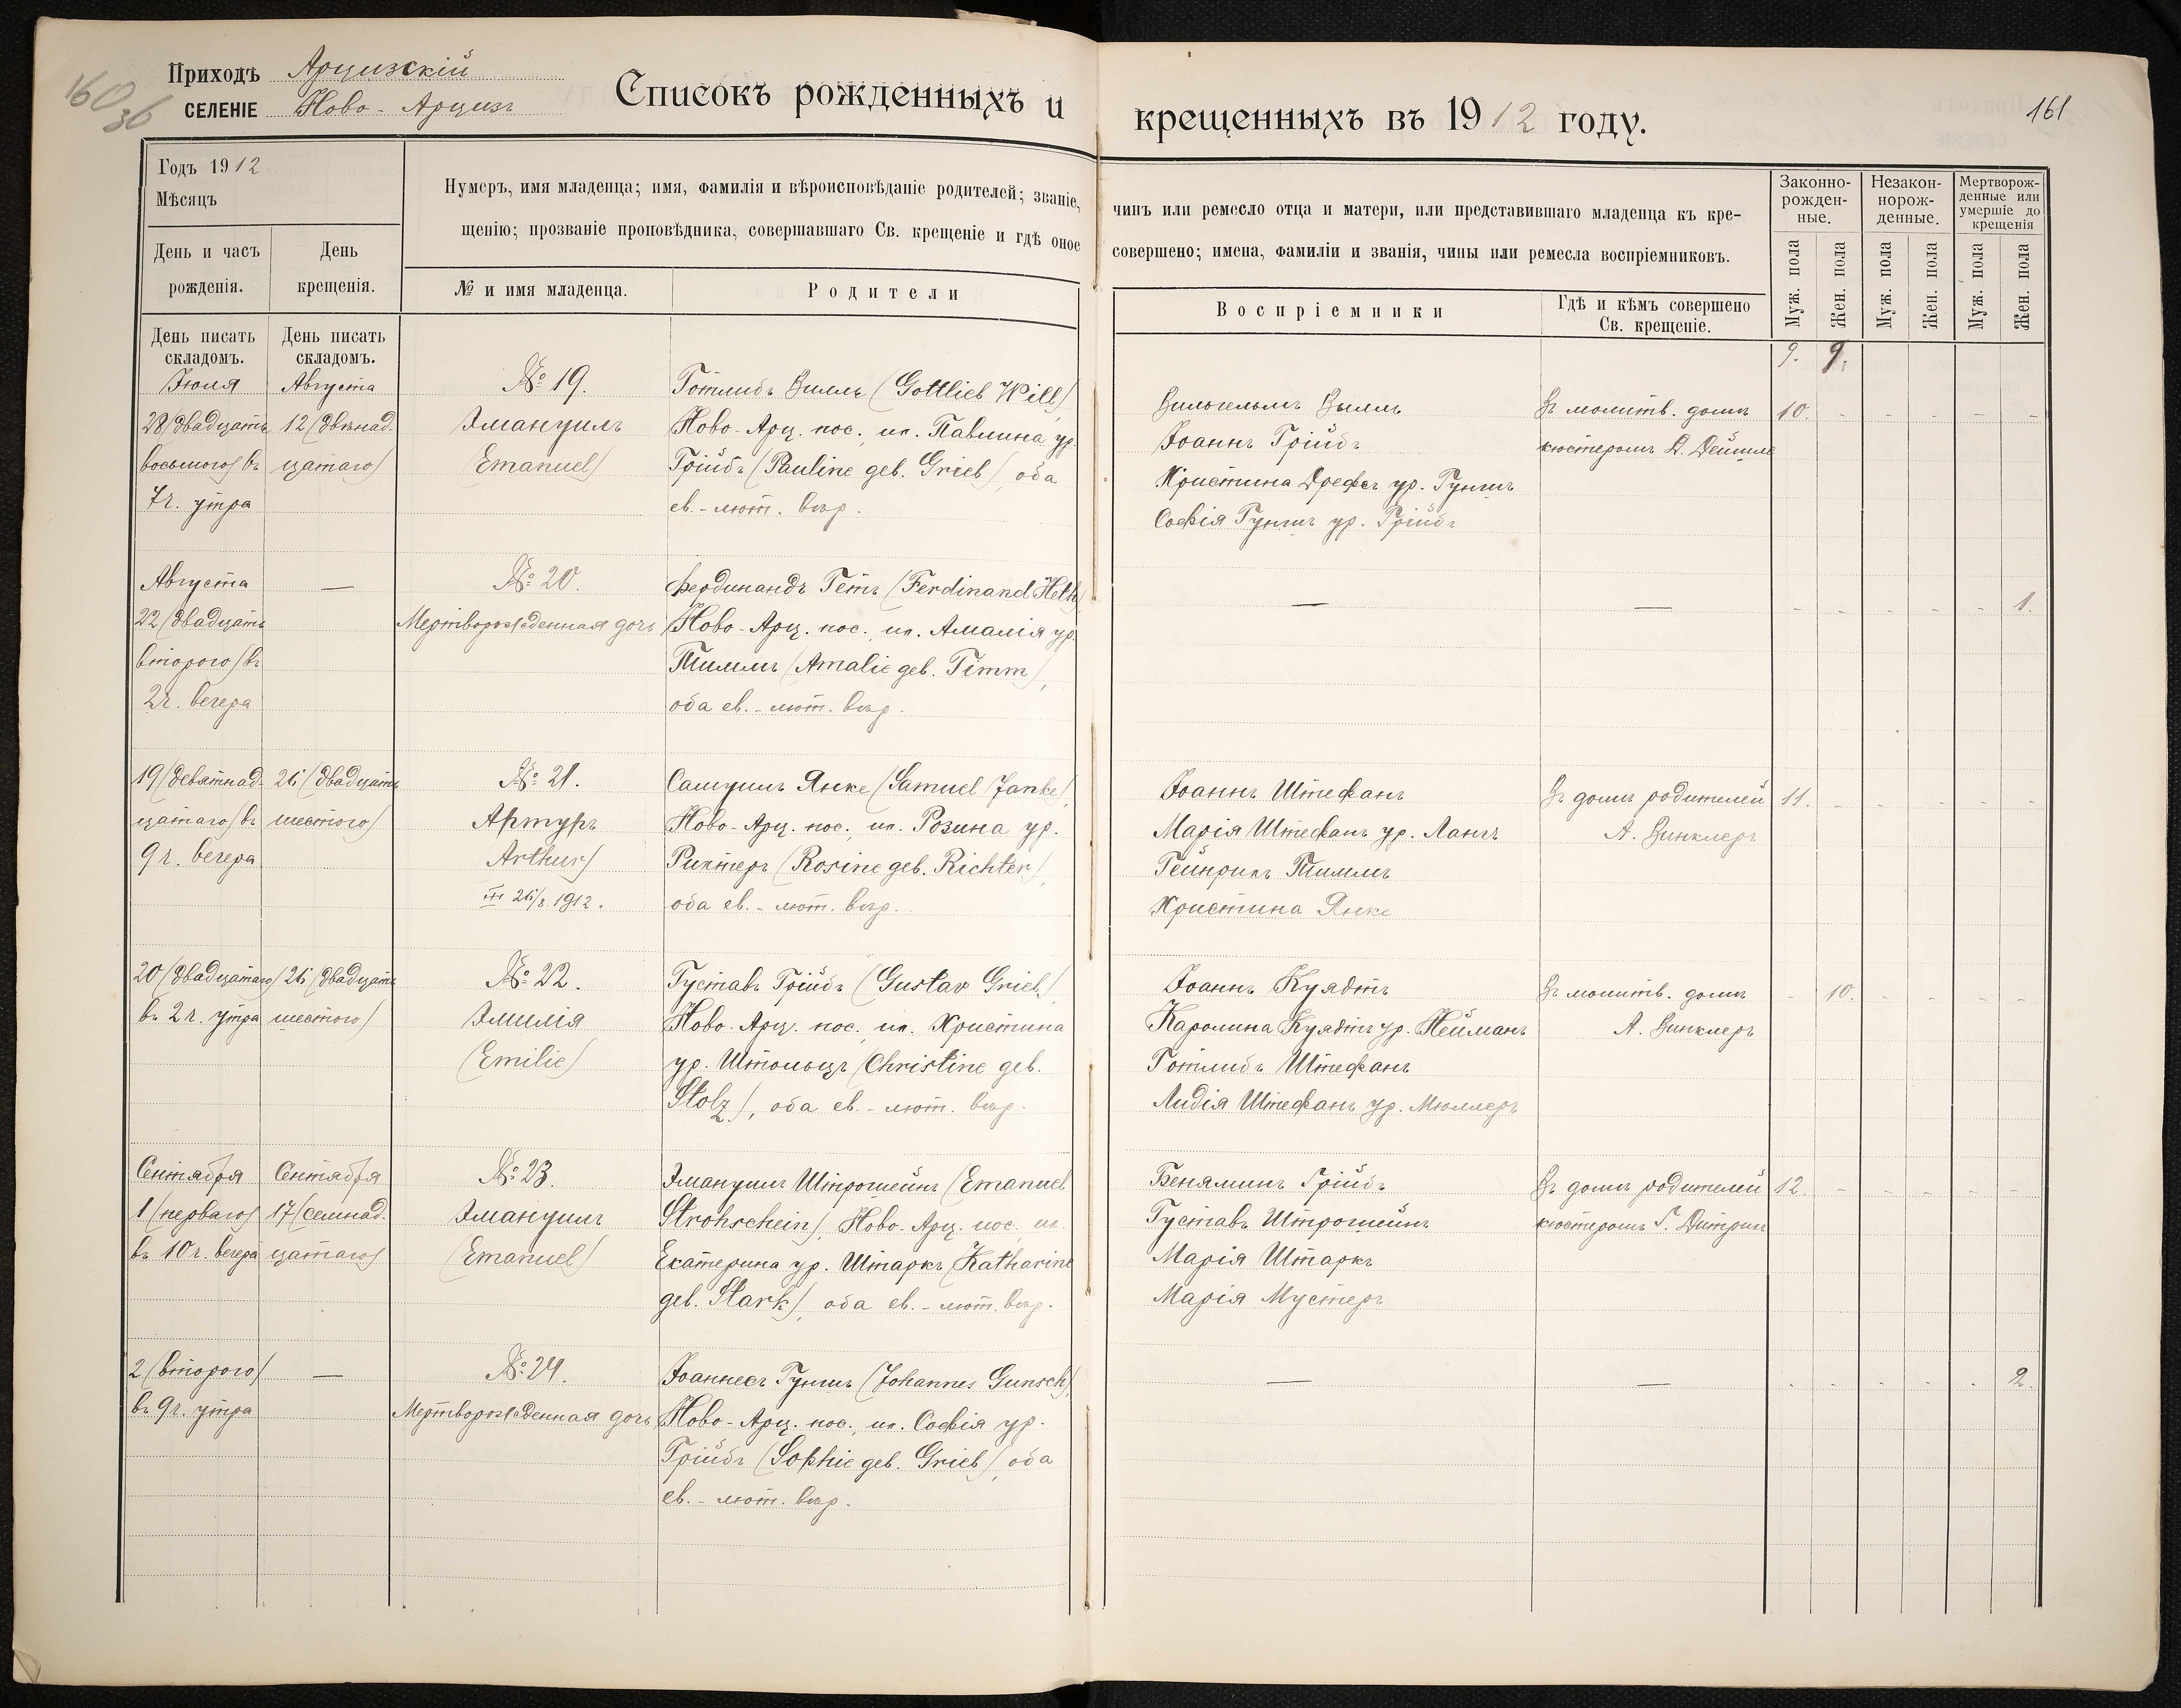 160
36
Приходъ Арцизскій
СЕЛЕНІЕ Ново-Арцизъ
Списокъ рожденныхъ и крещенныхъ въ 1912 году.
161
Годъ 1912
Мѣсяцъ
День и часъ рожденія.
День крещенія.
Нумеръ, имя младенца; имя, фамилія и вѣроисповѣданіе родителей; званіе, чинъ или ремесло отца и матери, или представившаго младенца къ кре-
щенію; прозваніе проповѣдника, совершавшаго Св. крещеніе и гдѣ оное совершено; имена, фамиліи и званія, чины или ремесла воспріемниковъ.
№ и имя младенца.
Родители
Воспріемники
Гдѣ и кѣмъ совершено
Св. крещеніе.
Законно-
рожден-
ные.
Незакон-
норож-
денные.
Мертворож-
денные или
умершіе до
крещенія
Муж. пола
Жен. пола
Муж. пола
Жен. пола
Муж. пола
Жен. пола
День писать
складомъ.
День писать
складомъ.
9. 9.
Іюля
28 (двадцать
восьмого) въ
7 ч. утра
Августа
12 (двѣнад-
цатаго)
№ 19.
Эмануилъ
(Emanuel)
Готлибъ Вилль (Gottlieb Will),
Ново-Арц. пос., ж. Павлина ур.
Гріибъ (Pauline geb. Grieb), оба
ев.-лют. вѣр.
Вильгельмъ Вилль
Іоаннъ Гріибъ
Христина Дрефсъ ур. Гуншъ
Софія Гуншъ ур. Гріибъ
Въ молитв. домѣ
кюстеромъ Д. Дейшле
10. - - - - -
Августа
22 (двадцать
второго) въ
2 ч. вечера
—
№ 20.
Мертворожденная дочь
Фердинандъ Гетъ (Ferdinand Heth),
Ново-Арц. пос., ж. Амалія ур.
Тиммъ (Amalie geb. Timm),
оба ев.-лют. вѣр.
—
—
- - - - - 1.
19 (девятнад-
цатаго) въ
9 ч. вечера
26 (двадцать
шестого)
№ 21.
Артуръ
Arthur)
26/8. 1912.
Самуилъ Янке (Samuel Janke),
Ново-Арц. пос., ж. Розина ур.
Рихтеръ (Rosine geb. Richter),
оба ев.-лют. вѣр.
Іоаннъ Штефанъ
Марія Штефанъ ур. Лангъ
Гейнрихъ Тиммъ
Христина Янке
Въ домѣ родителей
А. Винклеръ
11. - - - - -
20 (двадцатаго)
въ 2 ч. утра
26 (двадцать
шестого)
№ 22.
Эмилія
(Emilie)
Густавъ Гріибъ (Gustav Grieb),
Ново-Арц. пос., ж. Христина
ур. Штольцъ (Christine geb.
Stolz), оба ев.-лют. вѣр.
Іоаннъ Куядтъ
Каролина Куядтъ ур. Нейманъ
Готлибъ Штефанъ
Лидія Штефанъ ур. Мюллеръ
Въ молитв. домѣ
А. Винклеръ
- 10. - - - -
Сентября
1 (перваго)
въ 10 ч. вечера
Сентября
17 (семнад-
цатаго)
№ 23.
Эмануилъ
(Emanuel)
Эмануилъ Штрошейнъ (Emanuel
Strohschein), Ново-Арц. пос., ж.
Екатерина ур. Штаркъ (Katharine
geb. Stark), оба ев.-лют. вѣр.
Беняминъ Гріибъ
Густавъ Штрошейнъ
Марія Штаркъ
Марія Мустеръ
Въ домѣ родителей
кюстеромъ Г. Дитрихъ
12. - - - - -
2 (второго)
въ 9 ч. утра
—
№ 24.
Мертворожденная дочь
Іоаннесъ Гуншъ (Johannes Gunsch),
Ново-Арц. пос., ж. Софія ур.
Гріибъ (Sophie geb. Grieb), оба
ев.-лют. вѣр.
—
—
- - - - - 2.